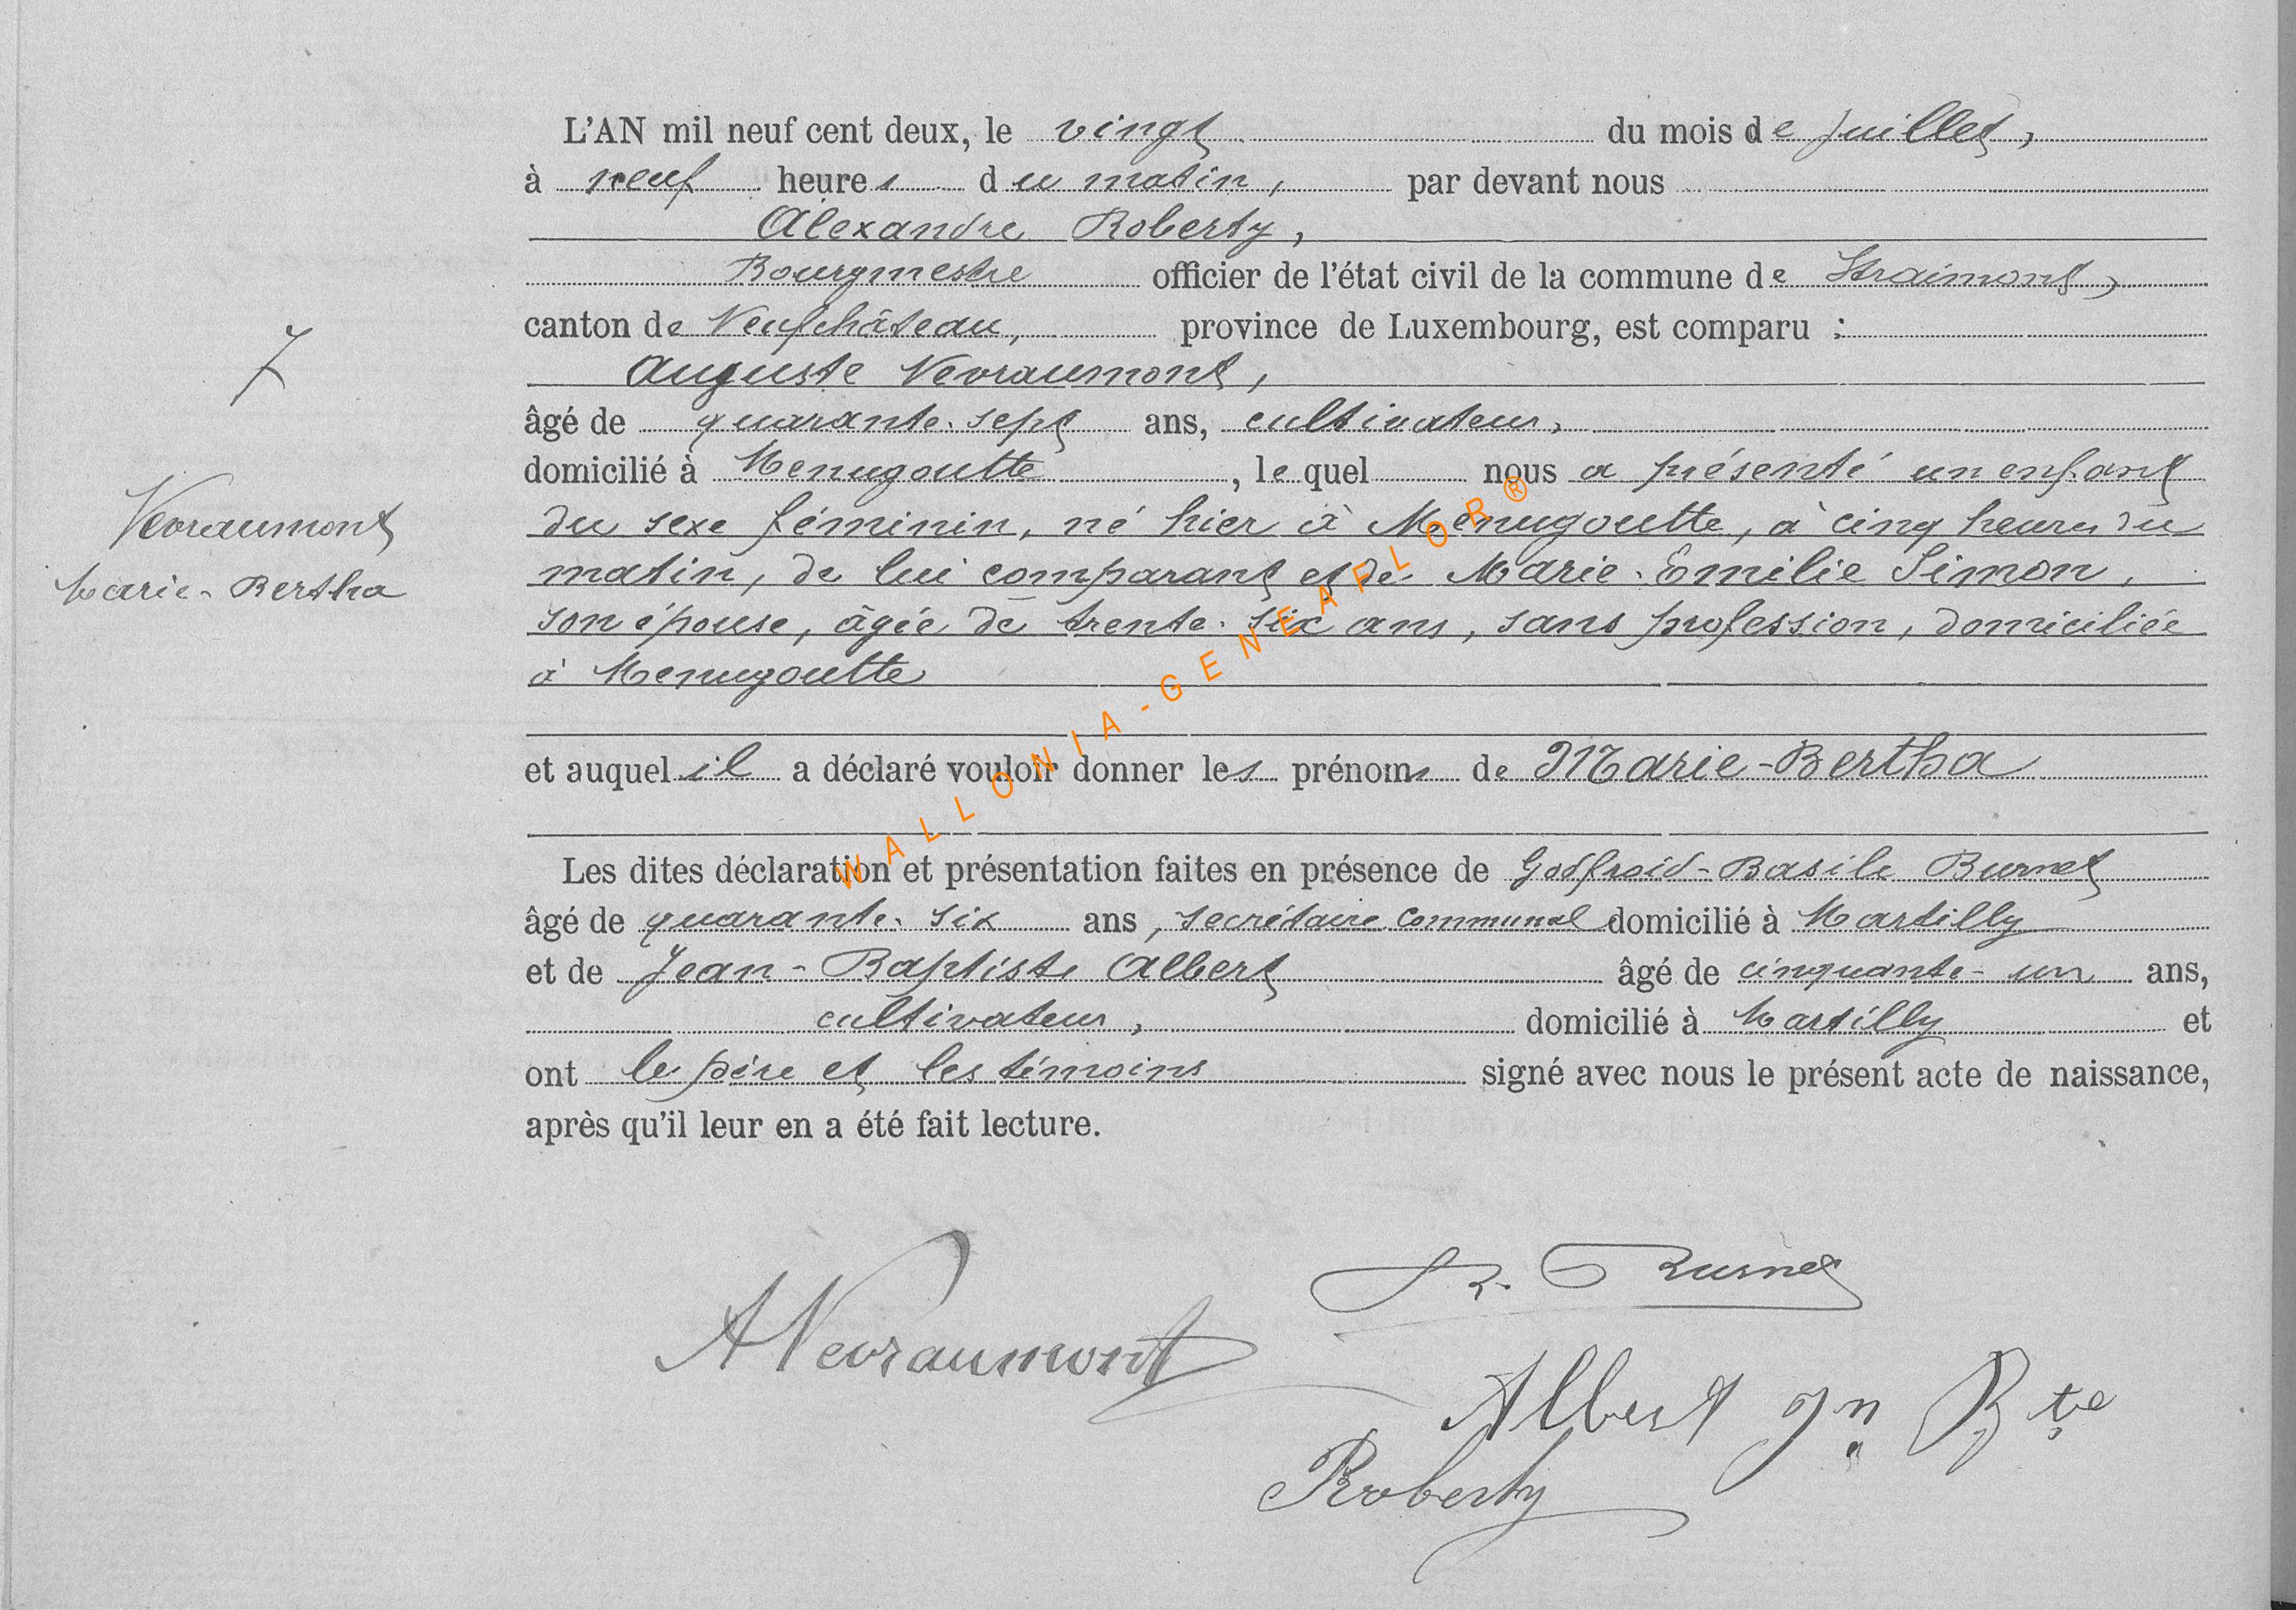 L'AN mil neuf cent deux, le vingt du mois de juillet,
à neuf heures du matin, par devant nous
Alexandre Roberty,
Bourgmestre officier de l'état civil de la commune de Straimont,
canton de Neufchâteau, province de Luxembourg, est comparu :
Auguste Nevraumont,
âgé de quarante-sept ans, cultivateur,
domicilié à Menugoutte, le quel nous a présenté un enfant
du sexe féminin, né hier à Menugoutte, à cinq heures du
matin, de lui comparant et de Marie-Emilie Simon,
son épouse, âgée de trente-six ans, sans profession, domiciliée
à Menugoutte
et auquel il a déclaré vouloir donner les prénoms de Marie-Bertha
Les dites déclaration et présentation faites en présence de Godfroid-Basile Burnet
âgé de quarante-six ans, secrétaire communal domicilié à Martilly
et de Jean-Baptiste Albert âgé de cinquante-un ans,
cultivateur, domicilié à Martilly et
ont le père et les témoins signé avec nous le présent acte de naissance,
après qu'il leur en a été fait lecture.
7
Nevraumont
Marie-Bertha
WALLONIA-GENEAFLOR®
Burnet
ANevraumont
Albert Jn Bte
Roberty